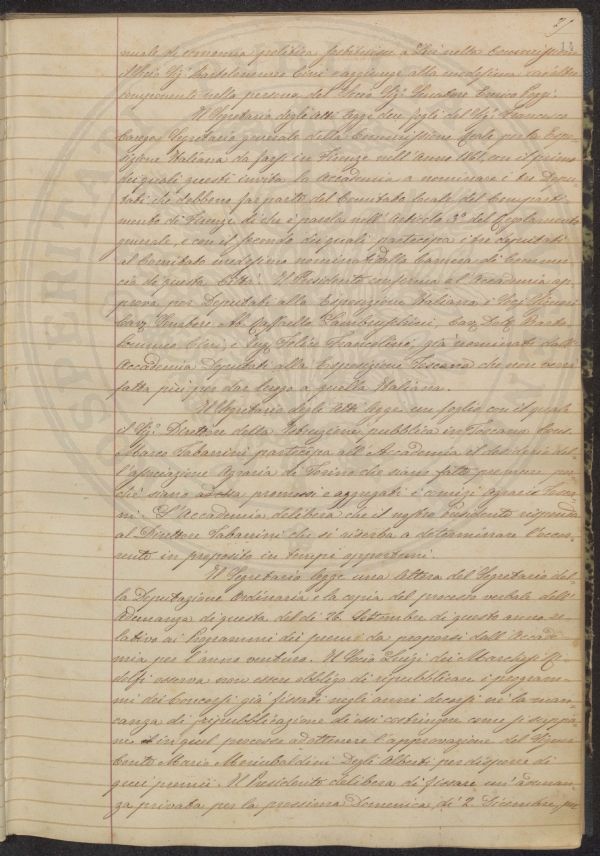 25
nuale di economia politica sostituisce a Lui nella Commissione
il Socio Sig. Bartolommeo Cini e aggiunge alla medesima un altro
componente nella persona del Socio Sig. Senatore Enrico Poggi.
Il Segretario degli Atti legge due fogli del Sig. Francesco
Carega Segretario generale della Commissione Reale per la Espo-
sizione Italiana da farsi in Firenze nell'Anno 1861, con il primo
dei quali questi invita la Accademia a nominare i tre Depu-
tati che debbono far parte del Comitato locale del Comparti-
mento di Firenze di che è parola nell'Articolo 3° del Regolamento
generale, e con il secondo dei quali partecipa i tre deputati
al Comitato medesimo nominati dalla Camera di Commer-
cio di questa Città. Il Presidente conferma e l'Accademia ap-
prova per Deputati alla Esposizione Italiana i Sigg.
Cav. Ab. Raffaello Lambruschini, Cav. Dott. Barto-
lommeo Cini, e Ing. Felice Francolini, già nominati dall'
Accademia Deputati alla Esposizione Toscana che non venne
fatta più per dar luogo a quella Italiana.
Il Segretario degli Atti legge un foglio con il quale
il Sig. Direttore della Istruzione pubblica in Toscana Cons.
Marco Tabarrini partecipa all'Accademia il desiderio del-
l'associazione Agraria di Torino che siano fatte premure per-
chè siano ad essa promossi e aggregati i comizi agrarii Tosca-
ni. L'Accademia delibera che il nostro Presidente risponda
al Direttore Tabarrini che si riserba a determinare l'occor-
rente in proposito in tempi opportuni.
Il Segretario legge una lettera del Segretario del-
la Deputazione Ordinaria e la copia del processo verbale dell'
Adunanza di questa del dì 26 Settembre di questo anno re-
lativo ai Programmi dei premi da proporsi dall'Accade-
mia per l'anno venturo. Il Socio Luigi dei Marchesi Ri-
dolfi osserva non essere obbligo di ripubblicare i program-
mi dei Concorsi già fissati negli anni decorsi nè la man-
canza di ripubblicazione di essi costringere come si suppo-
ne in quel processo ad ottenere l'approvazione del Signor
Conte Mario Mori Ubaldini Degli Alberti per disporre di
quei premii. Il Presidente delibera di fissare un'adunan-
za privata per la prossima Domenica dì 2 Dicembre per